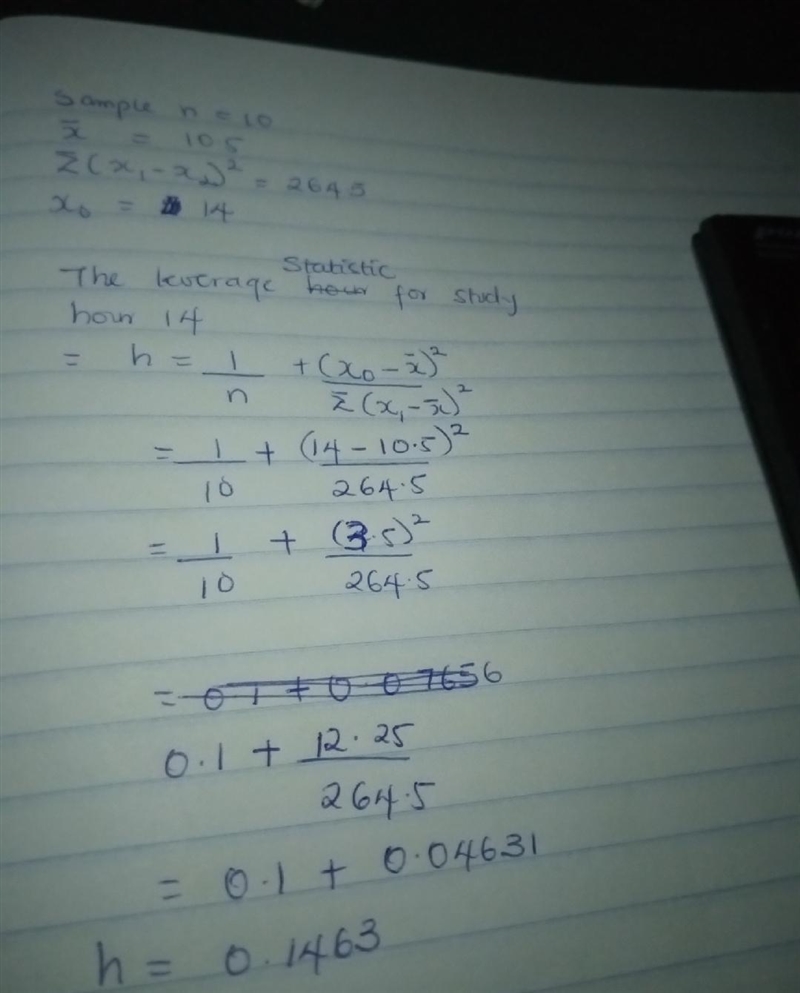 Sample n = 10
x̄ = 10 5
Σ(x₁ - x̄)² = 264.5
x₀ = 14
The leverage Statistic for study
hour 14
= h = 1/n + (x₀ - x̄)²/Σ(x₁ - x̄)²
= 1/10 + (14 - 10.5)²/264.5
= 1/10 + (3.5)²/264.5
= 0 1 + 0 07656
0.1 + 12.25/264.5
= 0.1 + 0.04631
h = 0.1463